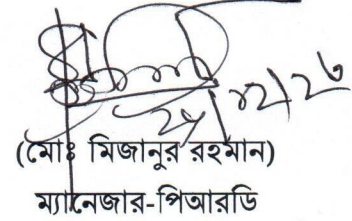 (মোঃ মিজানুর রহমান)
ম্যানেজার-পিআরডি